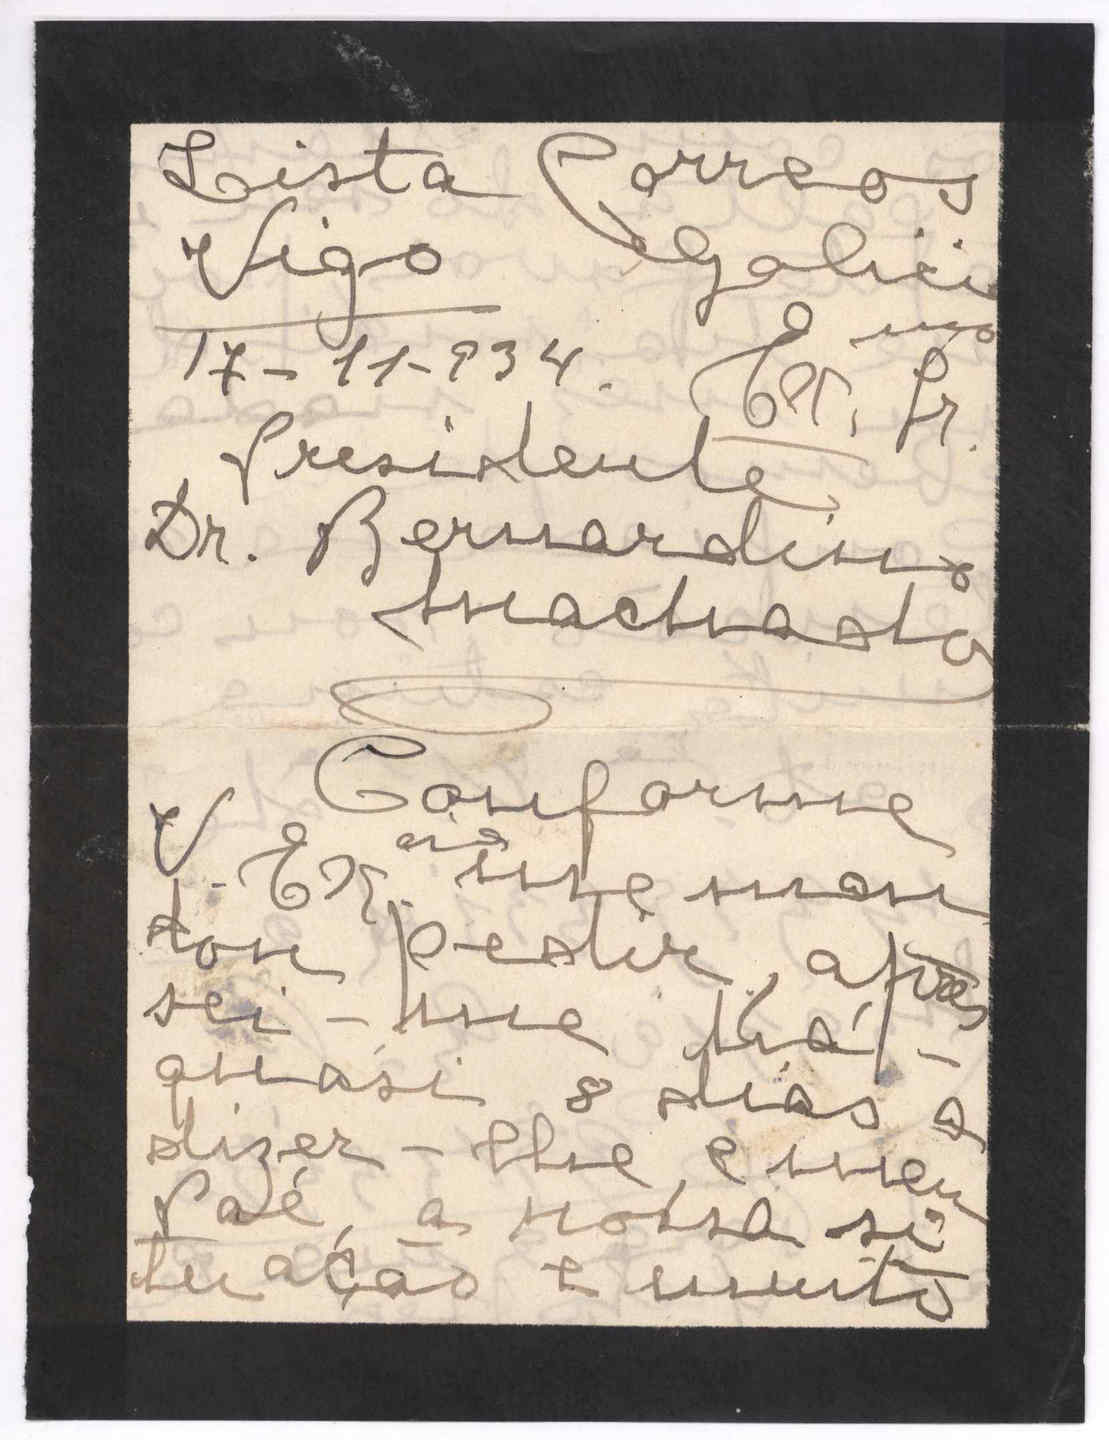 Lista Correos
Vigo Galicia
17-11-934. Exmo Sr.
Presidente
Dr. Bernardino
Machado
Conforme
V. Excia me man
dou pedir, apres
sei-me há-
quasi 8 dias a
dizer-lhe, e meu
Paé, a nossa si
tuação e muito